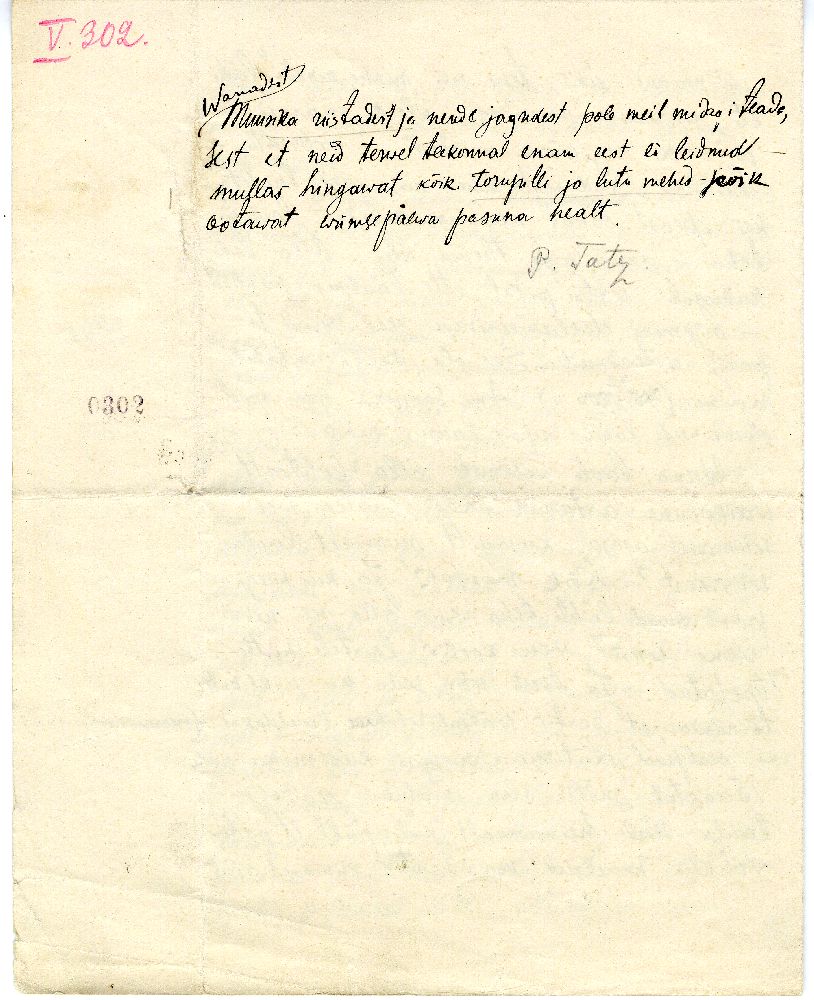 V. 302.
Wanadest
Muusika riistadest ja nende jagudest pole meil midagi teada,
sest et neid terwel teekonnal enam eest ei leidnud —
mullas hingawat kõik torupilli ja lutu mehed - kõik
ootawat wiimse päewa pasuna healt.
P. Tatz.
0302